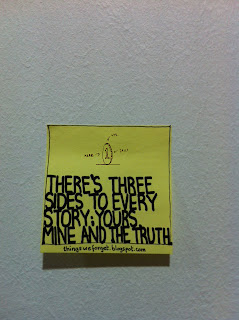 THERE'S THREE
SIDES TO EVERY
STORY; YOURS
MINE AND THE TRUTH.
thingsweforget.blogspot.com